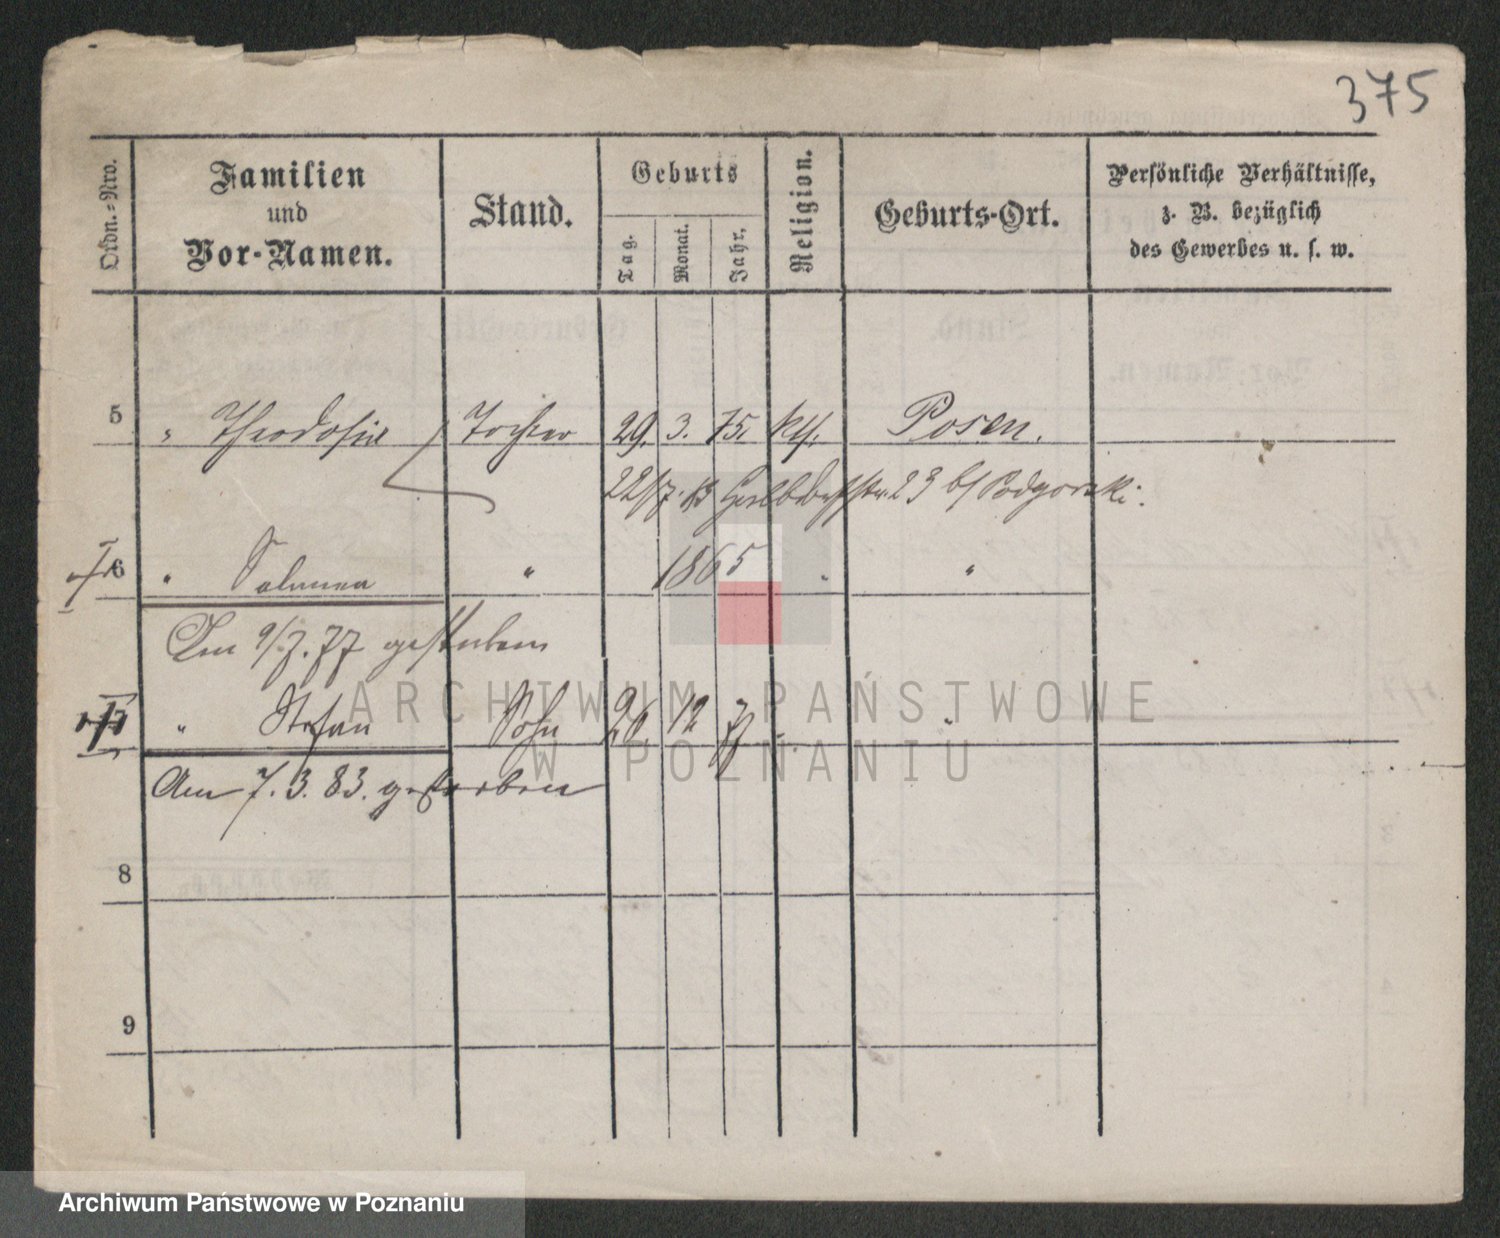 375
Ordn.-Nro.
Familien
und
Vor-Namen.
Stand.
Geburts
Tag.
Monat.
Jahr.
Religion.
Geburts-Ort.
Persönliche Verhältnisse,
z. B. bezüglich
des Gewerbes u. s. w.
5 " Theodosia Tochter 29. 3. 75. kth. Posen.
22/7. 23 b/ Podgorski.
6 " Salomea " 1865 " "
Am 9/7. 77 gestorben
7 " Stefan Sohn 26. 12 "
Am 7. 3. 83. gestorben
8
9
ARCHIWUM PAŃSTWOWE
W POZNANIU
Archiwum Państwowe w Poznaniu